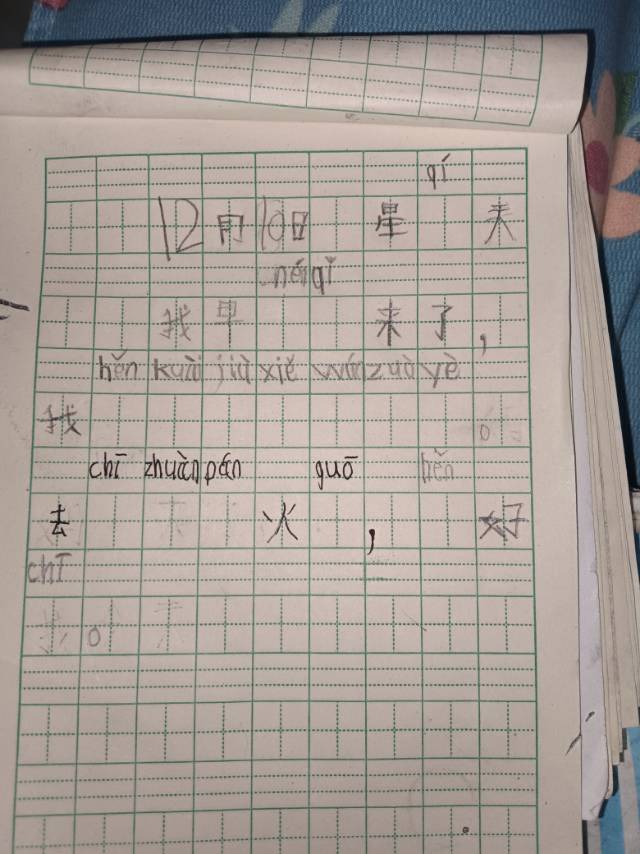 qí
12月10日 星 天
nén qǐ
我早 来了,
hěn kuài jiù xiě wán zuò yè
我 。
chī zhuàn pán guō hěn
去 火 , 好
chī
。